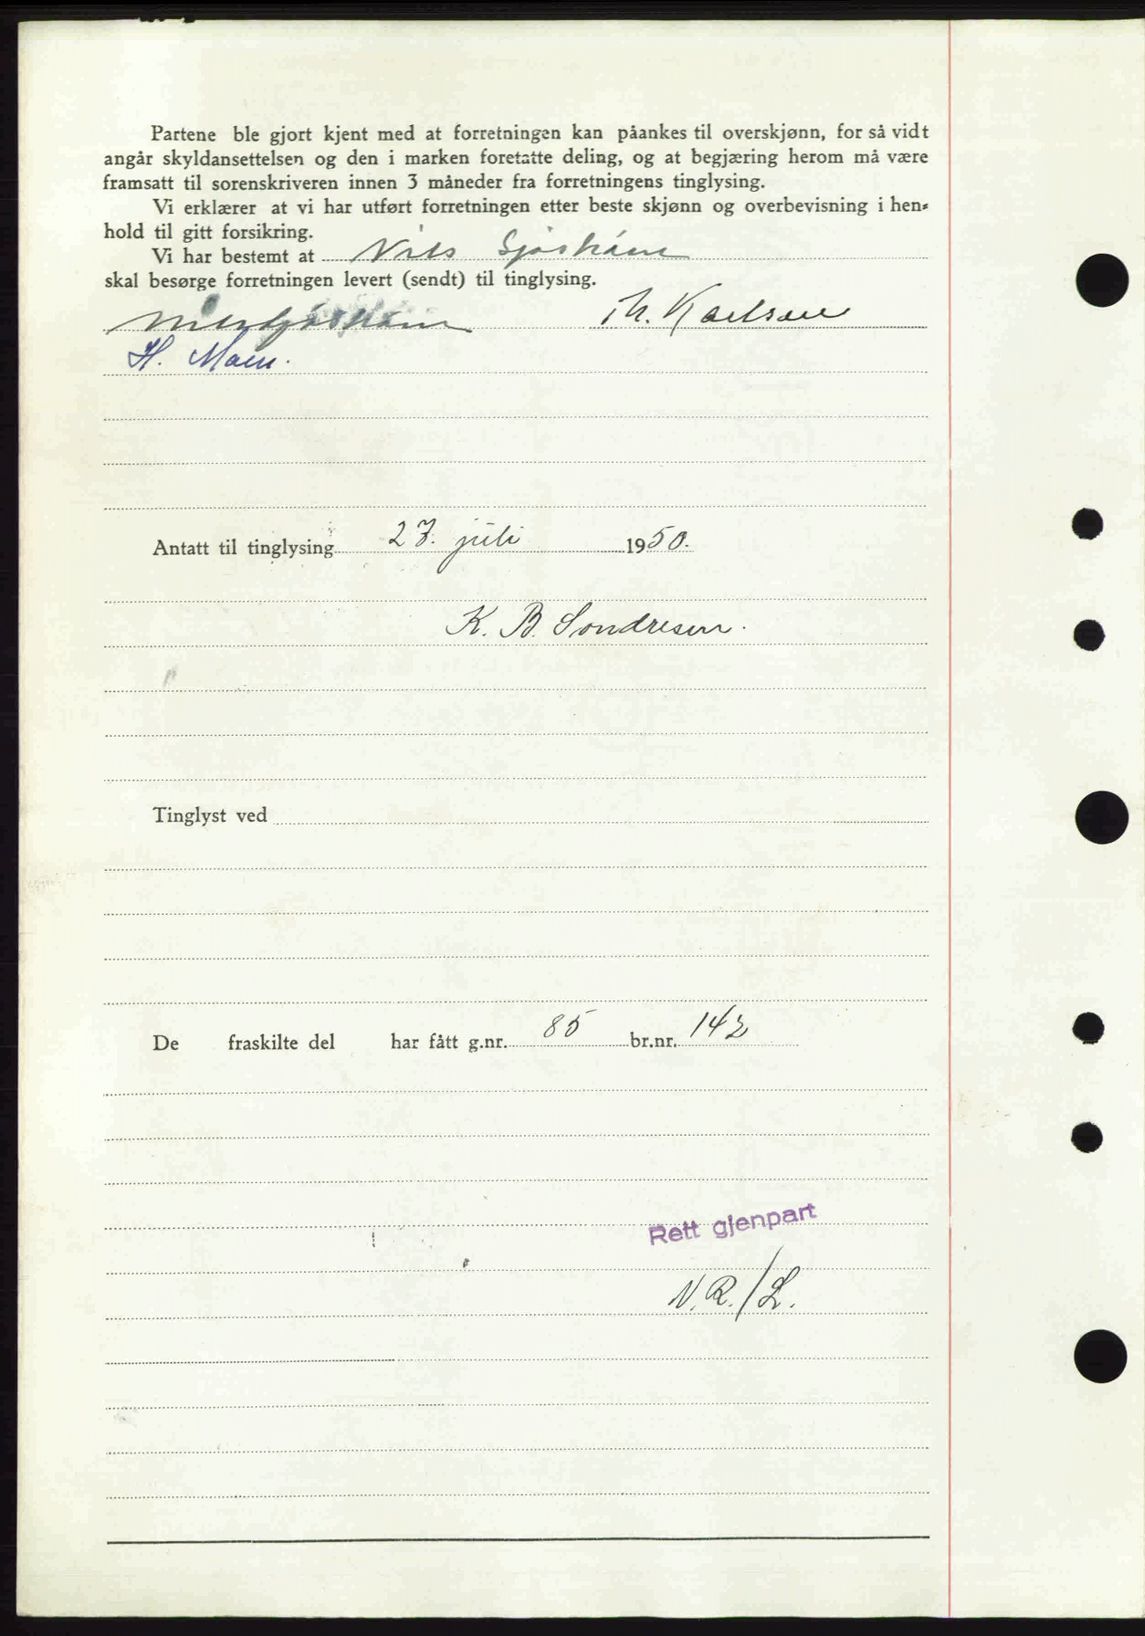 Partene ble gjort kjent med at forretningen kan påankes til overskjønn, for så vidt
angår skyldansettelsen og den i marken foretatte deling, og at begjæring herom må være
framsatt til sorenskriveren innen 3 måneder fra forretningens tinglysing.
Vi erklærer at vi har utført forretningen etter beste skjønn og overbevisning i hen-
hold til gitt forsikring.
Vi har bestemt at Nils Sjåshåm
skal besørge forretningen levert (sendt) til tinglysing.
Nils Sjåshåm Th. Karlsen
H. Moen.
Antatt til tinglysing 27. juli 1950.
K. B. Sondresen.
Tinglyst ved
De fraskilte del har fått g.nr. 85 br.nr. 142
Rett gjenpart
N.R./L.